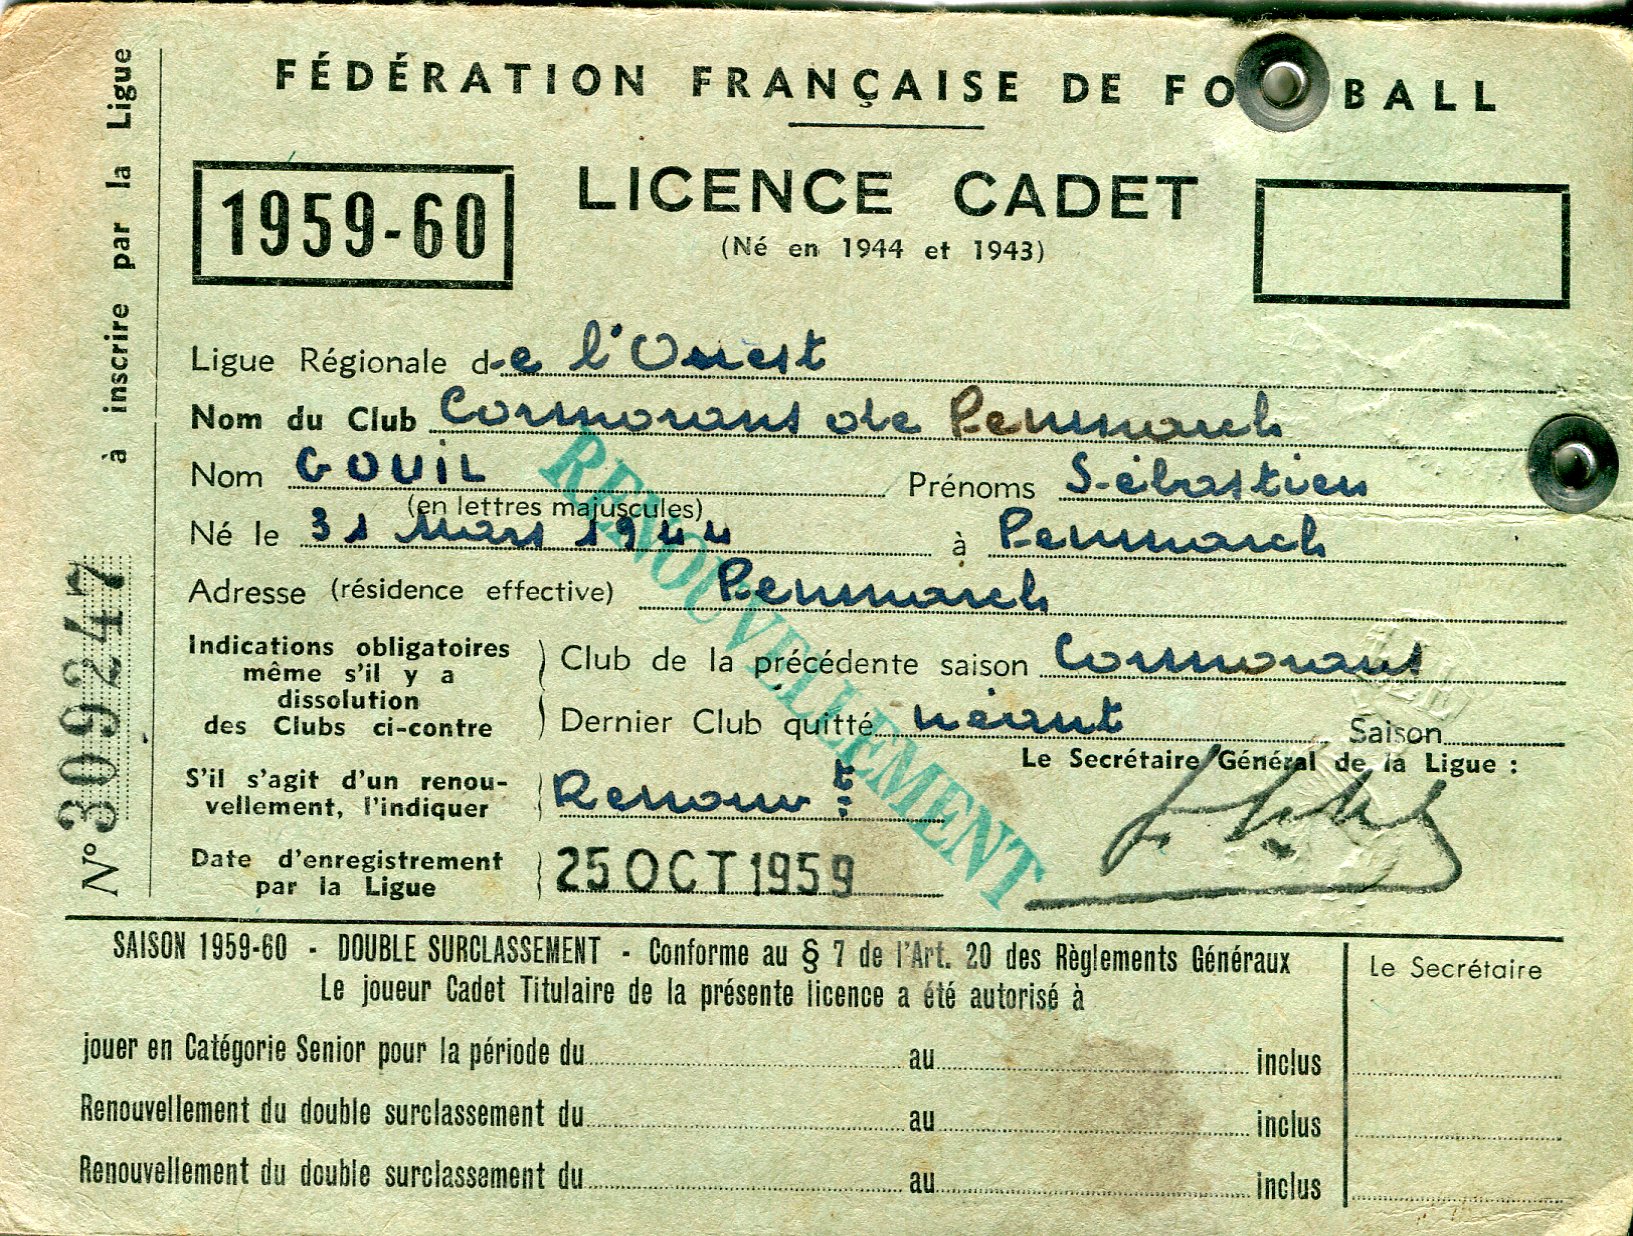 FÉDÉRATION FRANÇAISE DE FO BALL
à inscrire par la Ligue
N° 309247
1959-60
LICENCE CADET
(Né en 1944 et 1943)
Ligue Régionale d-e l'Ouest
Nom du Club Cormorans de Penmarch
Nom GOUIL Prénoms Sébastien
(en lettres majuscules)
Né le 31 Mars 1944 à Penmarch
Adresse (résidence effective) Penmarch
Indications obligatoires
même s'il y a
dissolution
des Clubs ci-contre
Club de la précédente saison Cormorans
Dernier Club quitté néant Saison
Le Secrétaire Général de la Ligue :
S'il s'agit d'un renou-
vellement, l'indiquer
Renouv t :
Date d'enregistrement
par la Ligue
25 OCT 1959
RENOUVELLEMENT
SAISON 1959-60 - DOUBLE SURCLASSEMENT - Conforme au § 7 de l'Art. 20 des Règlements Généraux
Le joueur Cadet Titulaire de la présente licence a été autorisé à
Le Secrétaire
jouer en Catégorie Senior pour la période du au inclus
Renouvellement du double surclassement du au inclus
Renouvellement du double surclassement du au inclus